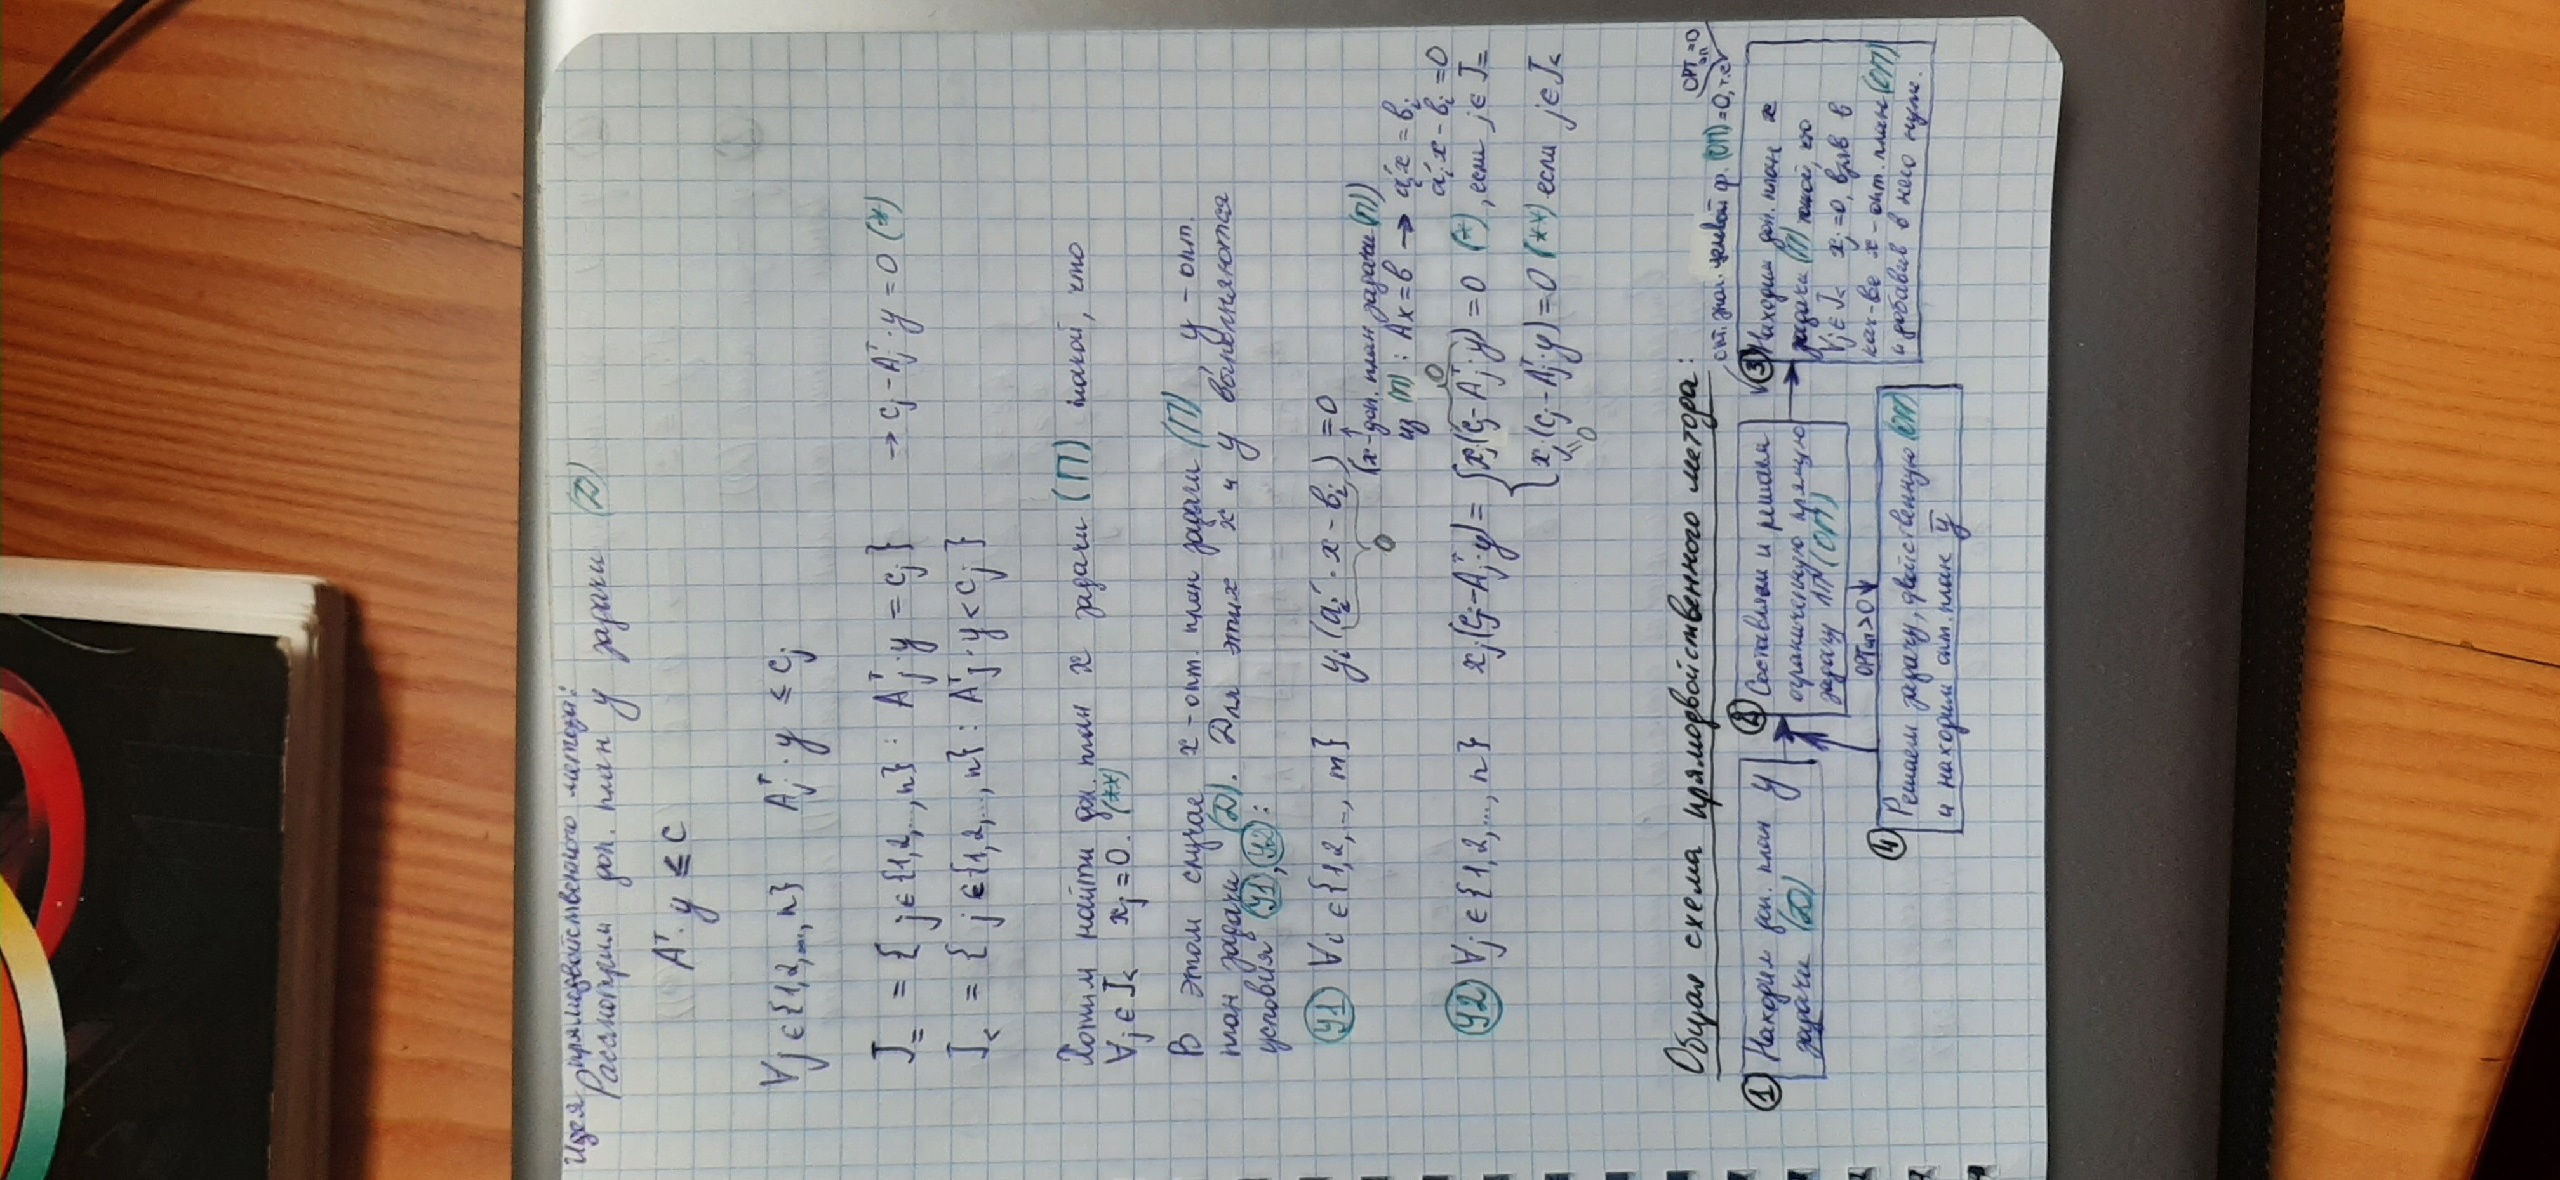 Идея прямодвойственного метода:
Рассмотрим доп. план y задачи (Д)
Aᵀ · y ≤ c
∀j ∈ {1,2,...,n} Aⱼᵀ · y ≤ cⱼ
J₌ = { j ∈ {1,2,...,n} : Aⱼᵀ · y = cⱼ } → cⱼ - Aⱼᵀ · y = 0 (*)
J˂ = { j ∈ {1,2,...,n} : Aⱼᵀ · y < cⱼ }
Хотим найти доп. план x задачи (П) такой, что
∀j ∈ J˂ xⱼ = 0. (**)
В этом случае x - опт. план задачи (П), y - опт.
план задачи (Д). Для этих x и y выполняются
условия У1, У2 :
У1 ∀i ∈ {1,2,...,m} yᵢ (aᵢ' · x - bᵢ) = 0
0
(x-доп. план задачи (П))
из (П) : Ax = b → aᵢ'x = bᵢ
aᵢ'x - bᵢ = 0
0
У2 ∀j ∈ {1,2,...,n} xⱼ(cⱼ - Aⱼᵀ · y) = { xⱼ(cⱼ - Aⱼᵀ · y) = 0 (*), если j ∈ J₌
xⱼ(cⱼ - Aⱼᵀ · y) = 0 (**) если j ∈ J˂
=0
Общая схема прямодвойственного метода:
OPTоп = 0
опт. знач. целевой ф. (ОП) = 0, т.е
1 Находим доп. план y
задачи (Д)
2 Составляем и решаем
ограниченную прямую
задачу ЛП (ОП)
3 Находим доп. план x
задачи (П) такой, что
∀j ∈ J˂ xⱼ = 0, взяв в
кач-ве x - опт. план (ОП)
и добавив в него нули.
OPTоп > 0
4 Решаем задачу, двойственную (ОП)
и находим опт. план y̅